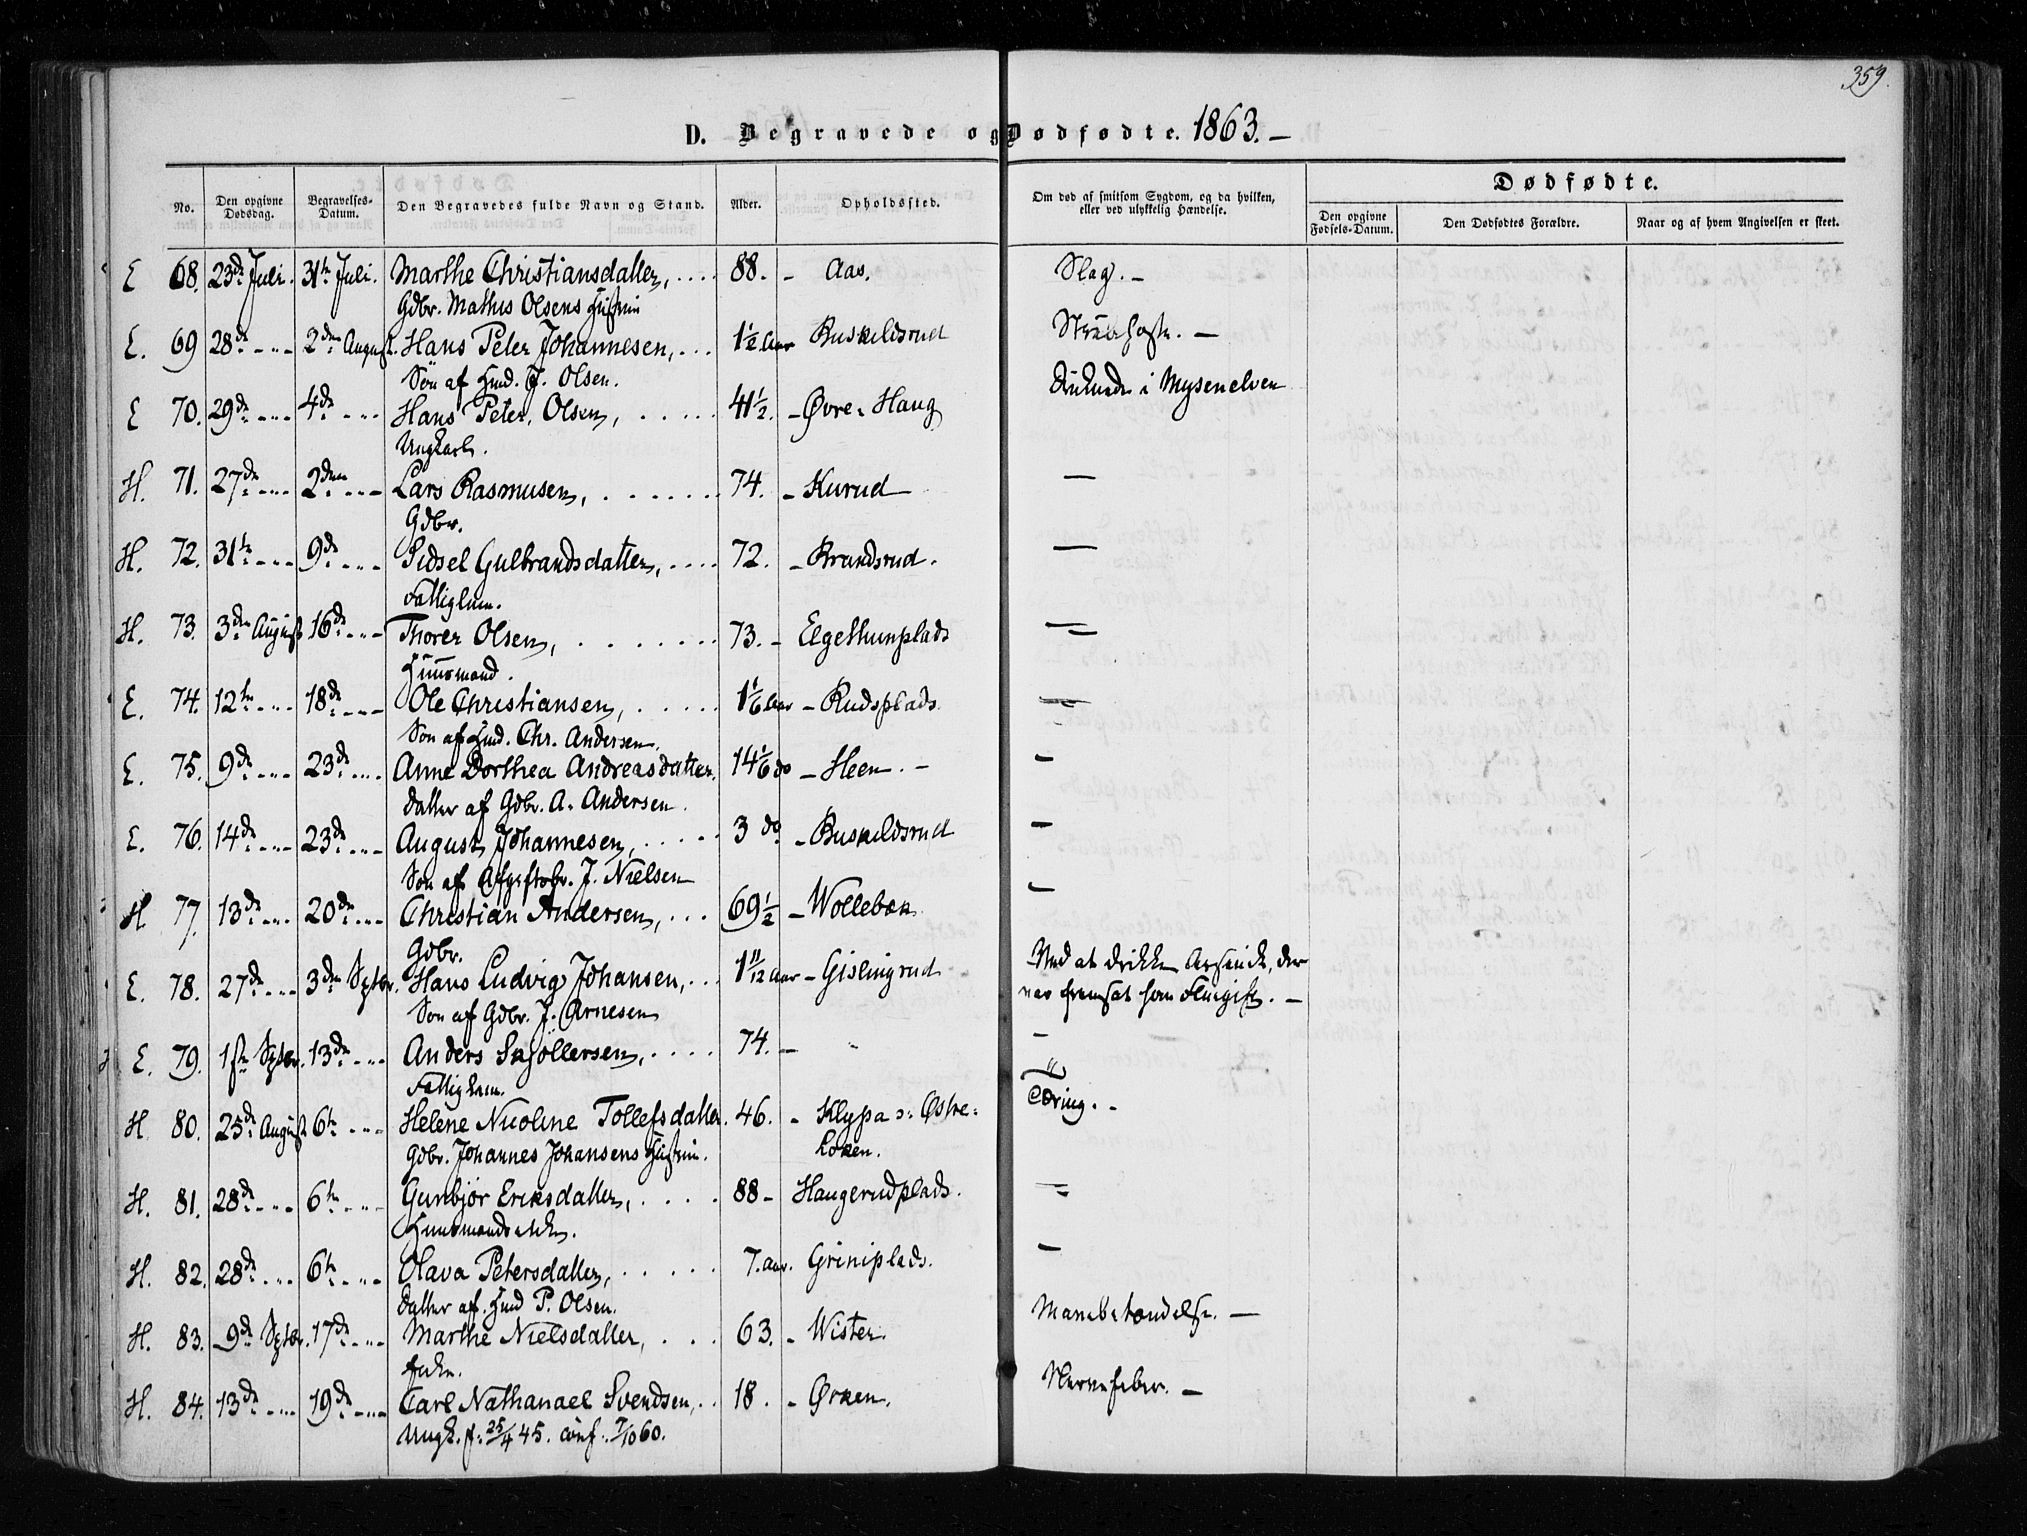 359.
D. Begravede og Dødfødte. 1863. –
No. Den opgivne Dødsdag. Begravelses-Datum. Den Begravedes fulde Navn og Stand. Alder. Opholdssted. Om død af smitsom Sygdom, og da hvilken, eller ved ulykkelig Hændelse. Dødfødte.
Den opgivne Fødsels-Datum. Den Dødfødtes Forældre. Naar og af hvem Angivelsen er skeet.
E 68. 23de Juli. 31te Juli. Marthe Christiansdatter, .... 88. – Aas. Slag. –
Gdbr. Mathis Olsens Hustru
E. 69 28de -"- 2den August. Hans Peter Johannesen, ... 1½ Aar Buskildsrud Strubehoste. –
Søn af Husmd. J. Olsen.
E 70. 29de -"- 4de -"- Hans Peter Olsen, ..... 41½. – Øvre-Haug Druknede i Mysenelven
Ungkarl.
H. 71. 27de -"- 2den -"- Lars Rasmusen, ...... 74. – Kurud –
Gdbr.
H. 72. 31te -"- 9de -"- Sidsel Gulbrandsdatter, .... 72. – Brandsrud. –
Fattiglem.
H. 73. 3die August 16de -"- Thorer Olsen, ...... 73. – Elgetunplads –
Huusmand.
E. 74. 12te -"- 18de -"- Ole Christiansen, ..... 1 1/6 Aar – Rudsplads –
Søn af Husmd. Chr. Andersen.
E. 75. 9de -"- 23de -"- Anne Dorthea Andreasdatter. 14 1/6 do – Heen. – –
Datter af Gdbr. A. Andersen.
E. 76. 14de -"- 23de -"- August Johannesen, ..... 3 do – Buskildsrud –
Søn af Afgiftsbr. J. Nielsen
H 77. 13de -"- 20de -"- Christian Andersen, ... 69½ – Wollebæk –
Gdbr.
E. 78. 27de -"- 3die Septbr. Hans Ludvig Johansen, ... 1 11/12 Aar – Gislingrud Ved at drikke Arsenik, der
Søn af Gdbr. J. Arnesen var fremsat som Fluegift. –
E. 79. 1ste Septbr. 13de -"- Anders Skjöllersen, .... 74. – - –
Fattiglem. "
H 80. 25de August 6te -"- Helene Nicoline Tollefsdatter. 46. - Klypa ɔ: Østre- Tæring. -
Gdbr. Johannes Johansens Hustru. Løken.
H. 81. 28de -"- 6te -"- Gunbjør Eriksdatter, .... 88 – Haugerudplads. –
Huusmandsenke.
H. 82. 28de -"- 6te -"- Olava Petersdatter, ..... 7. Aar. Griniplads. –
Datter af Husmd P. Olsen.
H. 83. 9de Septbr. 17de -"- Marthe Nielsdatter, ... 63. - Wister. Mavebetændelse. –
Enke.
H. 84. 13de -"- 19de -"- Carl Nathanael Svendsen, .. 18. - Ørken. Nervefeber. –
Ungk. f. 25/4 45. conf. 7/10 60.